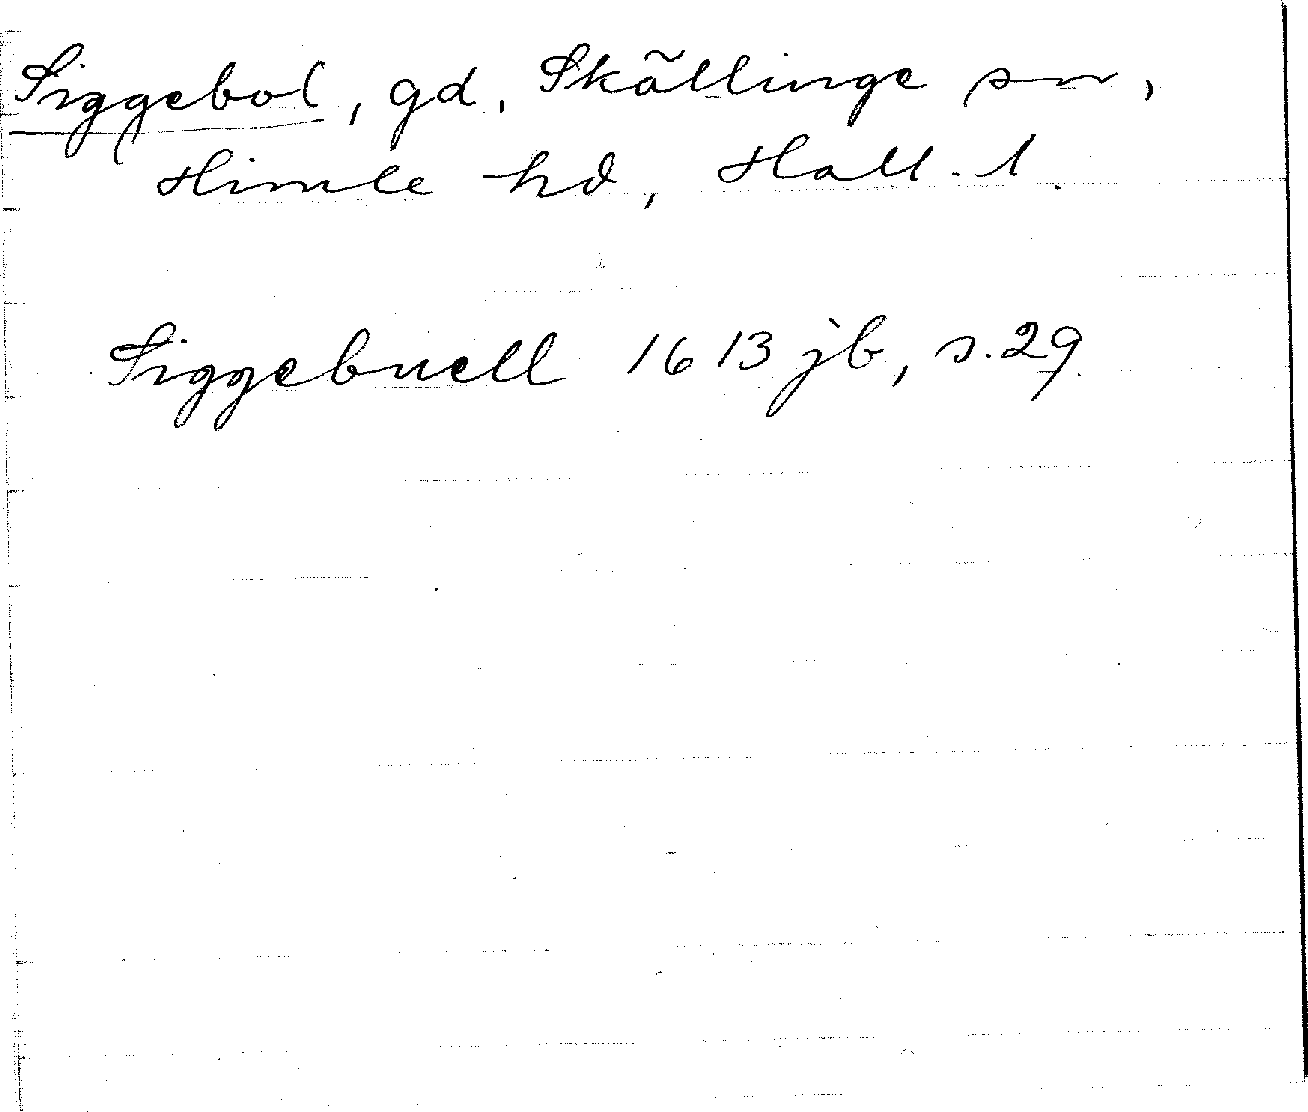 Siggebol, gd, Skällinge sn,
Himle hd, Hall. l.
Siggebuell 1613 jb, s. 29